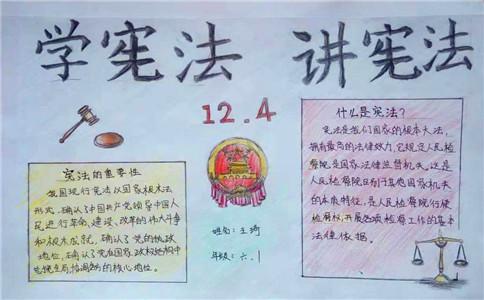 学宪法 讲宪法
12.4
宪法的重要性
我国现行宪法以国家根本法
形式,确认了中国共产党领导中国人
民进行革命、建设、改革的伟大斗争
和根本成就,确认了党的执政
地位,确认了党在国家政权结构中
的核心地位。
姓名:王琦
年级:六.1
什么是宪法?
宪法是我们国家的根本大法,
拥有最高的法律效力,它规定人民检
察院是国家法律监督机关,这是
人民检察院区别于其他国家机关
的本质特征,是人民检察院行使
检察权,开展各项检察工作的基本
法律依据。